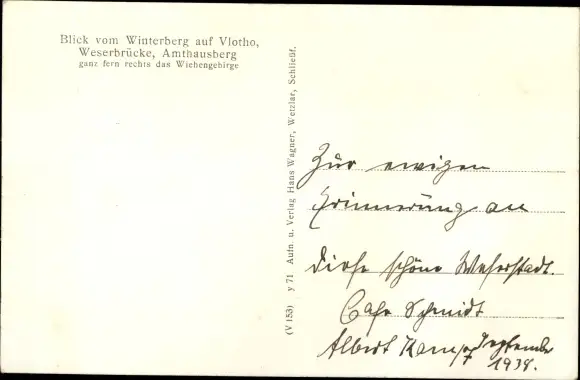 Blick vom Winterberg auf Vlotho,
Weserbrücke, Amthausberg
ganz fern rechts das Wiehengebirge
(V 153) y 71 Aufn. u. Verlag Hans Wagner, Wetzlar, Schließf.
Zur ewigen
Erinnerung an
diese schöne Weserstadt.
Cafe Schmidt
Albert September
1938.